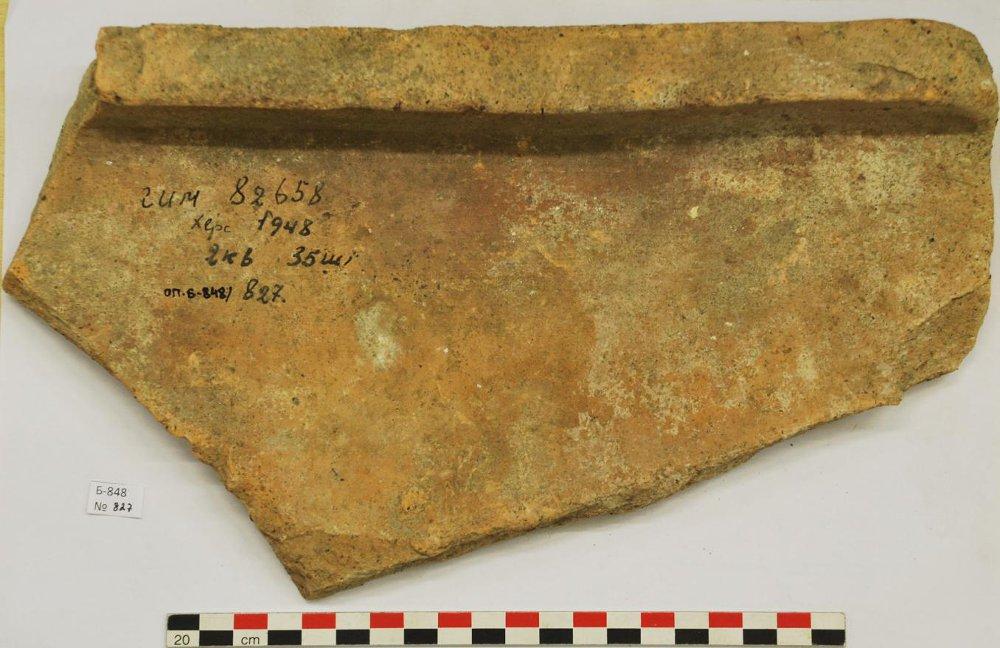 гим 82658
Херс 1948
2кв 35шт
оп.Б-848/ 827.
Б-848
№ 827
20 cm